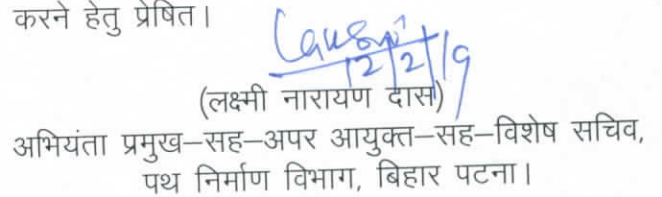 करने हेतु प्रेषित।
12/2/19
(लक्ष्मी नारायण दास)
अभियंता प्रमुख–सह–अपर आयुक्त–सह–विशेष सचिव,
पथ निर्माण विभाग, बिहार पटना।